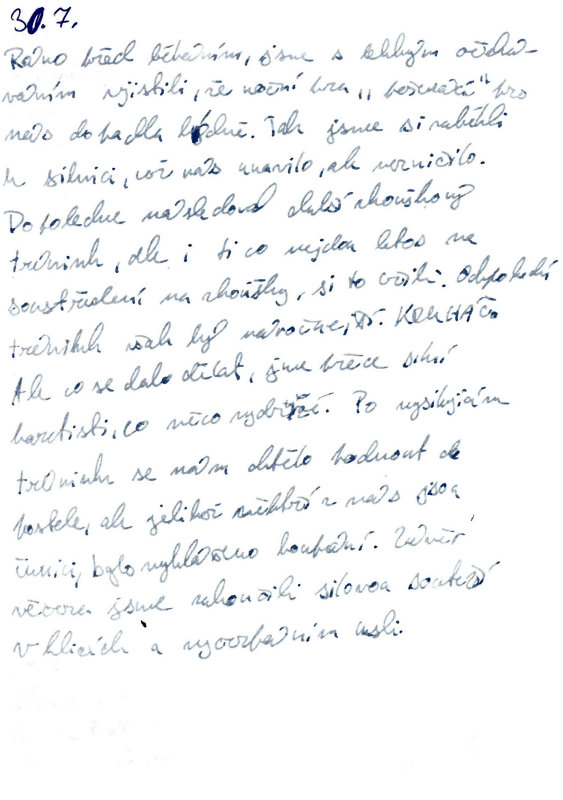 30.7.
Ráno před běháním, jsme s lehkým očeká-
váním zjistili, že noční hra „bojenače" pro
nás dopadla bídně. Tak jsme si zaběhli
k silnici, což nás unavilo, ale nezničilo.
Dopoledne následoval další zkouškový
trénink, ale i ti co nejdou letos na
soustředění na zkoušky, si to užili. Odpolední
trénink však byl náročnej,
Ale co se dalo dělat, jsme přece silní
karetisti, co něco vydrží. Po vysilujícím
tréninku se nám chtělo padnout do
postele, ale jelikož někteří z nás jsou
čuníci, bylo vyhlášeno koupání. Závěr
večera jsme zakončili silovou soutěží
v klicích a vycvrkáním uslí.